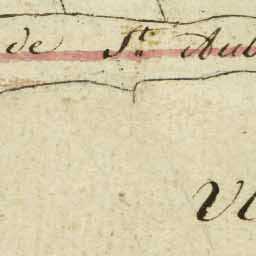 de St. Aub